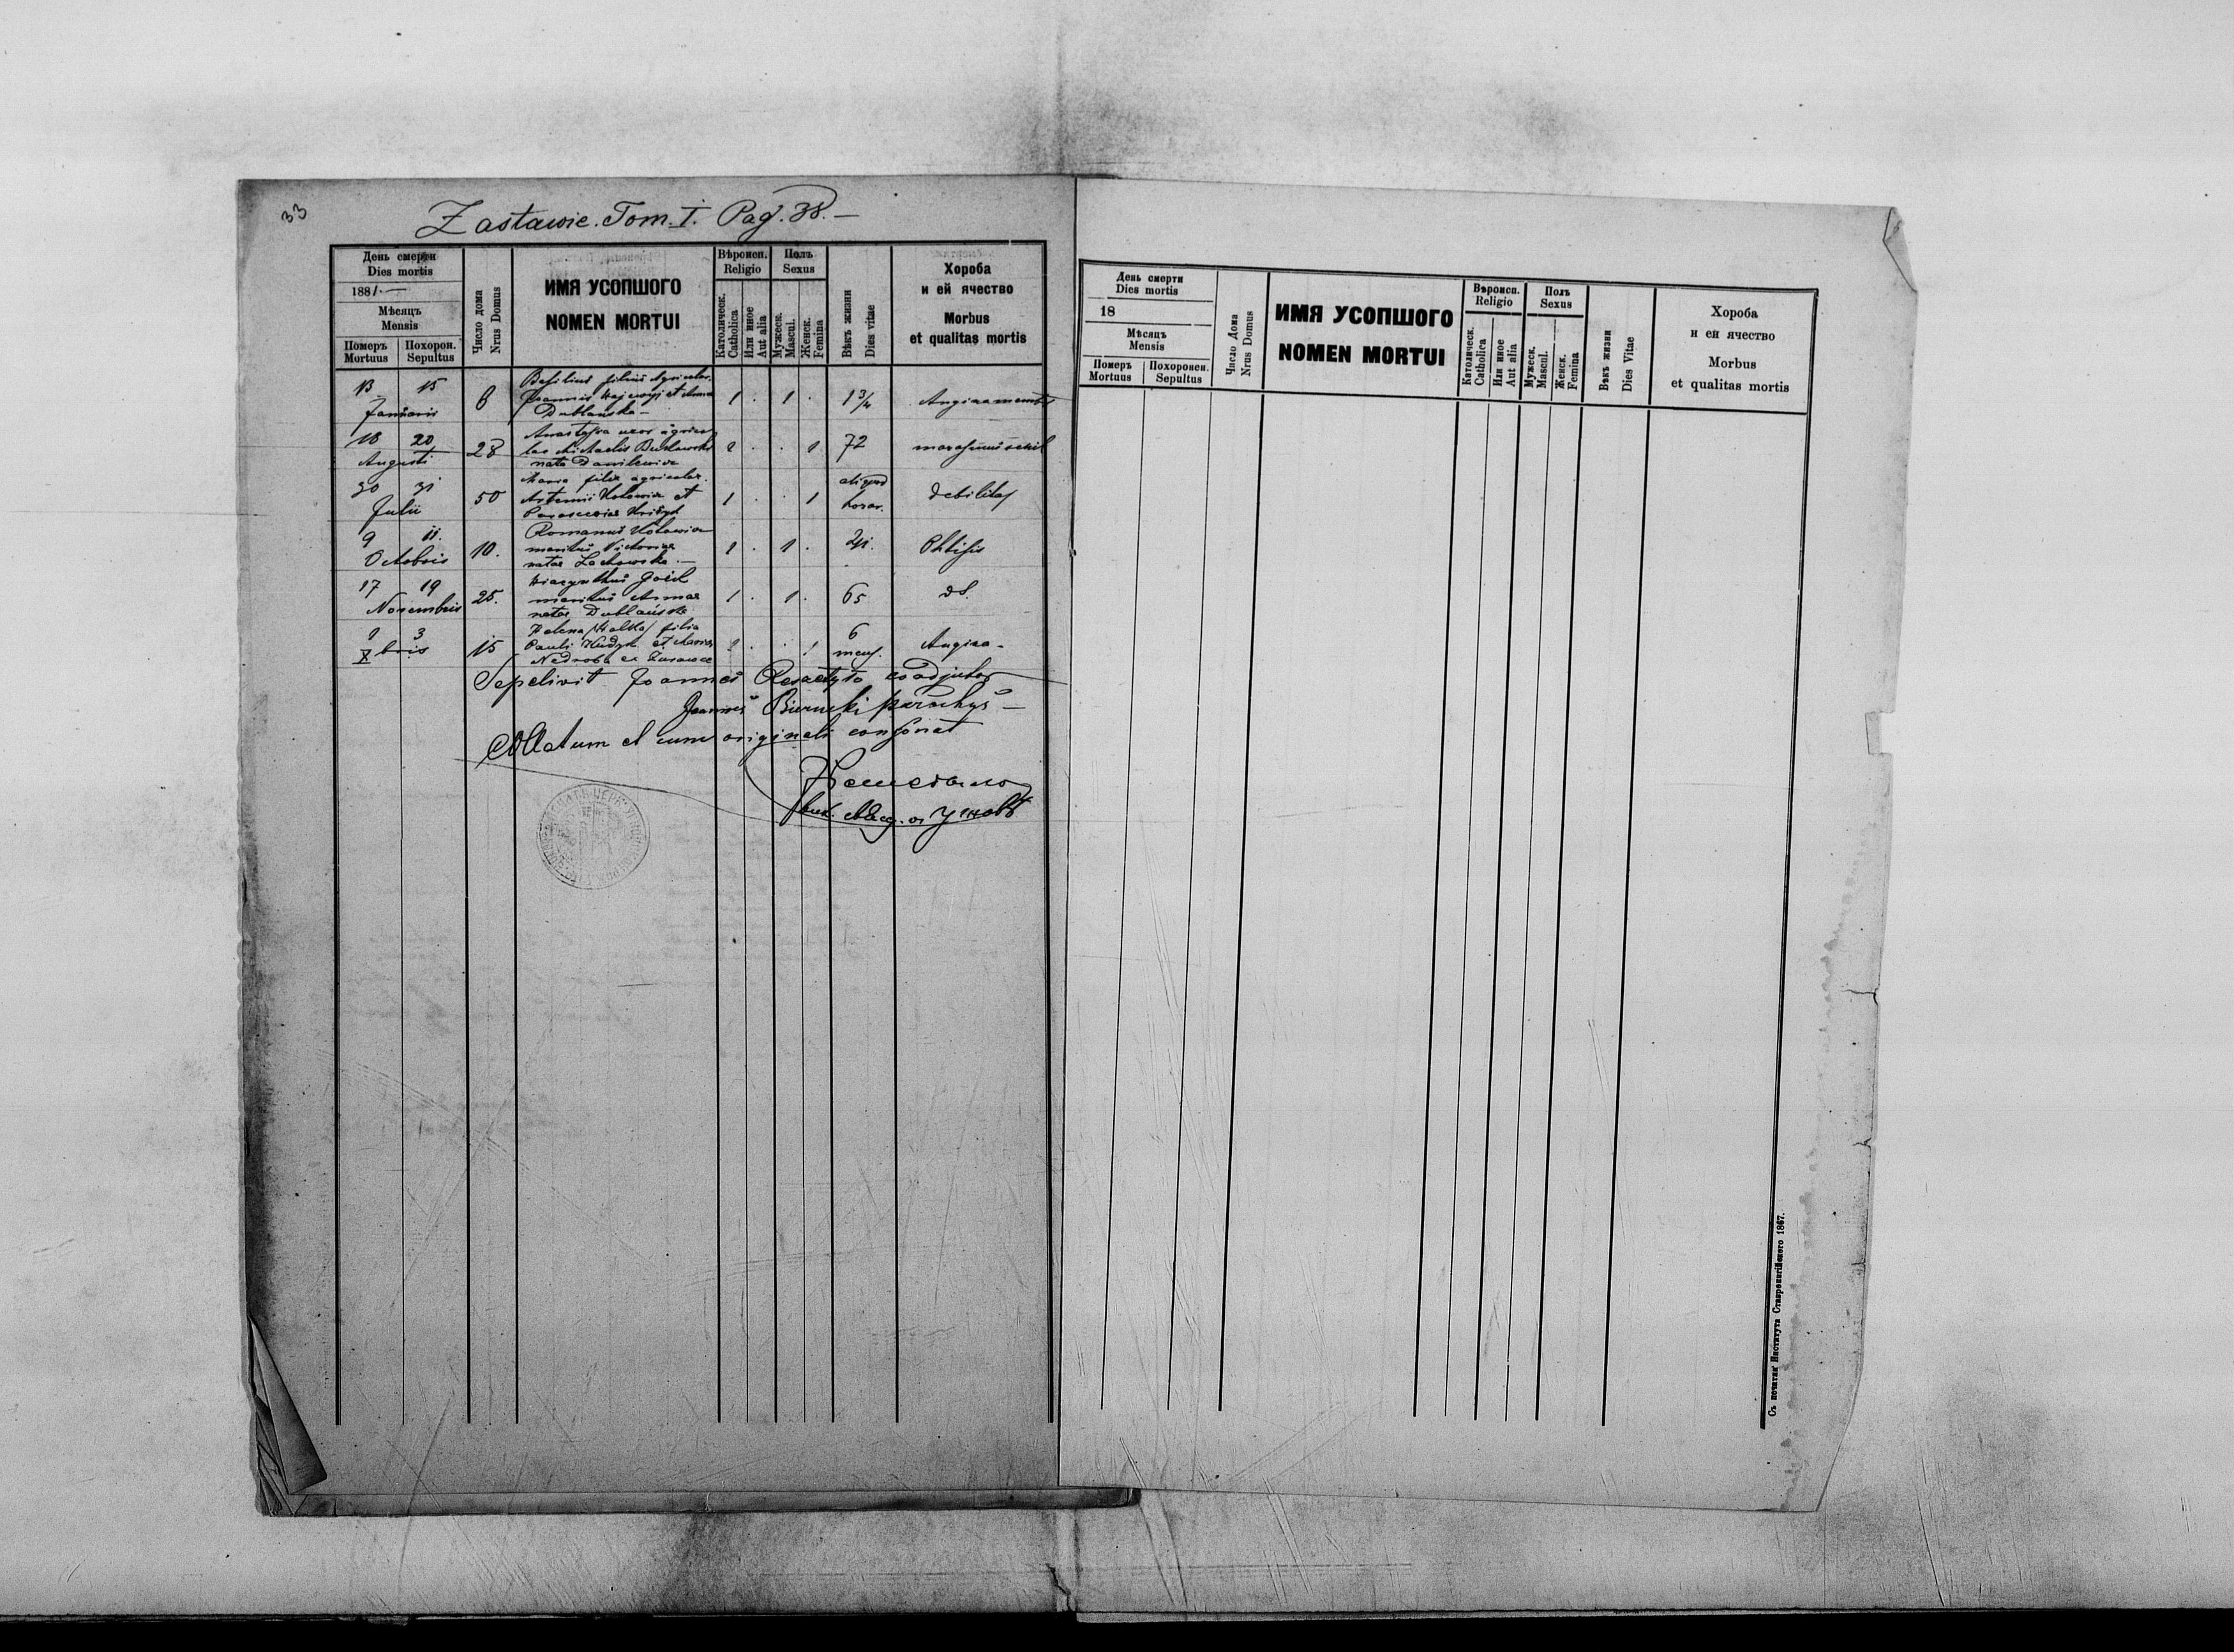 33
Zastawie. Tom. I. Pag. 38. —
День смерти
Dies mortis
1881. —
Мѣсяцъ
Mensis
Померъ
Mortuus
Похорон.
Sepultus
Число дома
Nrus Domus
ИМЯ УСОПШОГО
NOMEN MORTUI
Вѣроисп.
Religio
Католическ.
Catholica
Или иное
Aut alia
Полъ
Sexus
Мужеск.
Mascul.
Женск.
Femina
Вѣкъ жизни
Dies vitae
Хороба
и ей ячество
Morbus
et qualitas mortis
13 15
Januaris
6
Basilius filius Agricolar.
Joannis et Anna
Dublanska —
1 . 1 .
1 3/4
Angina
18 20
Augusti
28
uxor agrico
lae Michaelis
nata Danilewicz
1 . . 1
72
marasmus senil
30 31
Julii
50
Maria filia agricolar.
Artemii Holowicz et
1 . . 1
aliquod
horar.
debilitas
9 11.
Octobris
10.
Romanus Holowicz
maritus Victoriae
natae Lachowska —
1 . 1 .
Phtisis
17 19
Novembris
25.
Hiacynthus
maritus Annae
natae Dublańska
1 . 1 .
65
1 3
X bris
15
Helena filia
Pauli et Maria
1 . . 1
6
mens.
Angina -
Sepelivit Joannes coadjutor
Joannes parochus —
Collatum et cum originali consonat
День смерти
Dies mortis
18
Мѣсяцъ
Mensis
Померъ
Mortuus
Похоронен.
Sepultus
Число Дома
Nrus Domus
ИМЯ УСОПШОГО
NOMEN MORTUI
Вѣроисп.
Religio
Католическ.
Catholica
Или иное
Aut alia
Полъ
Sexus
Мужеск.
Mascul.
Женск.
Femina
Вѣкъ жизни
Dies Vitae
Хороба
и ей ячество
Morbus
et qualitas mortis
Съ печатни Института Ставропигійского 1867.